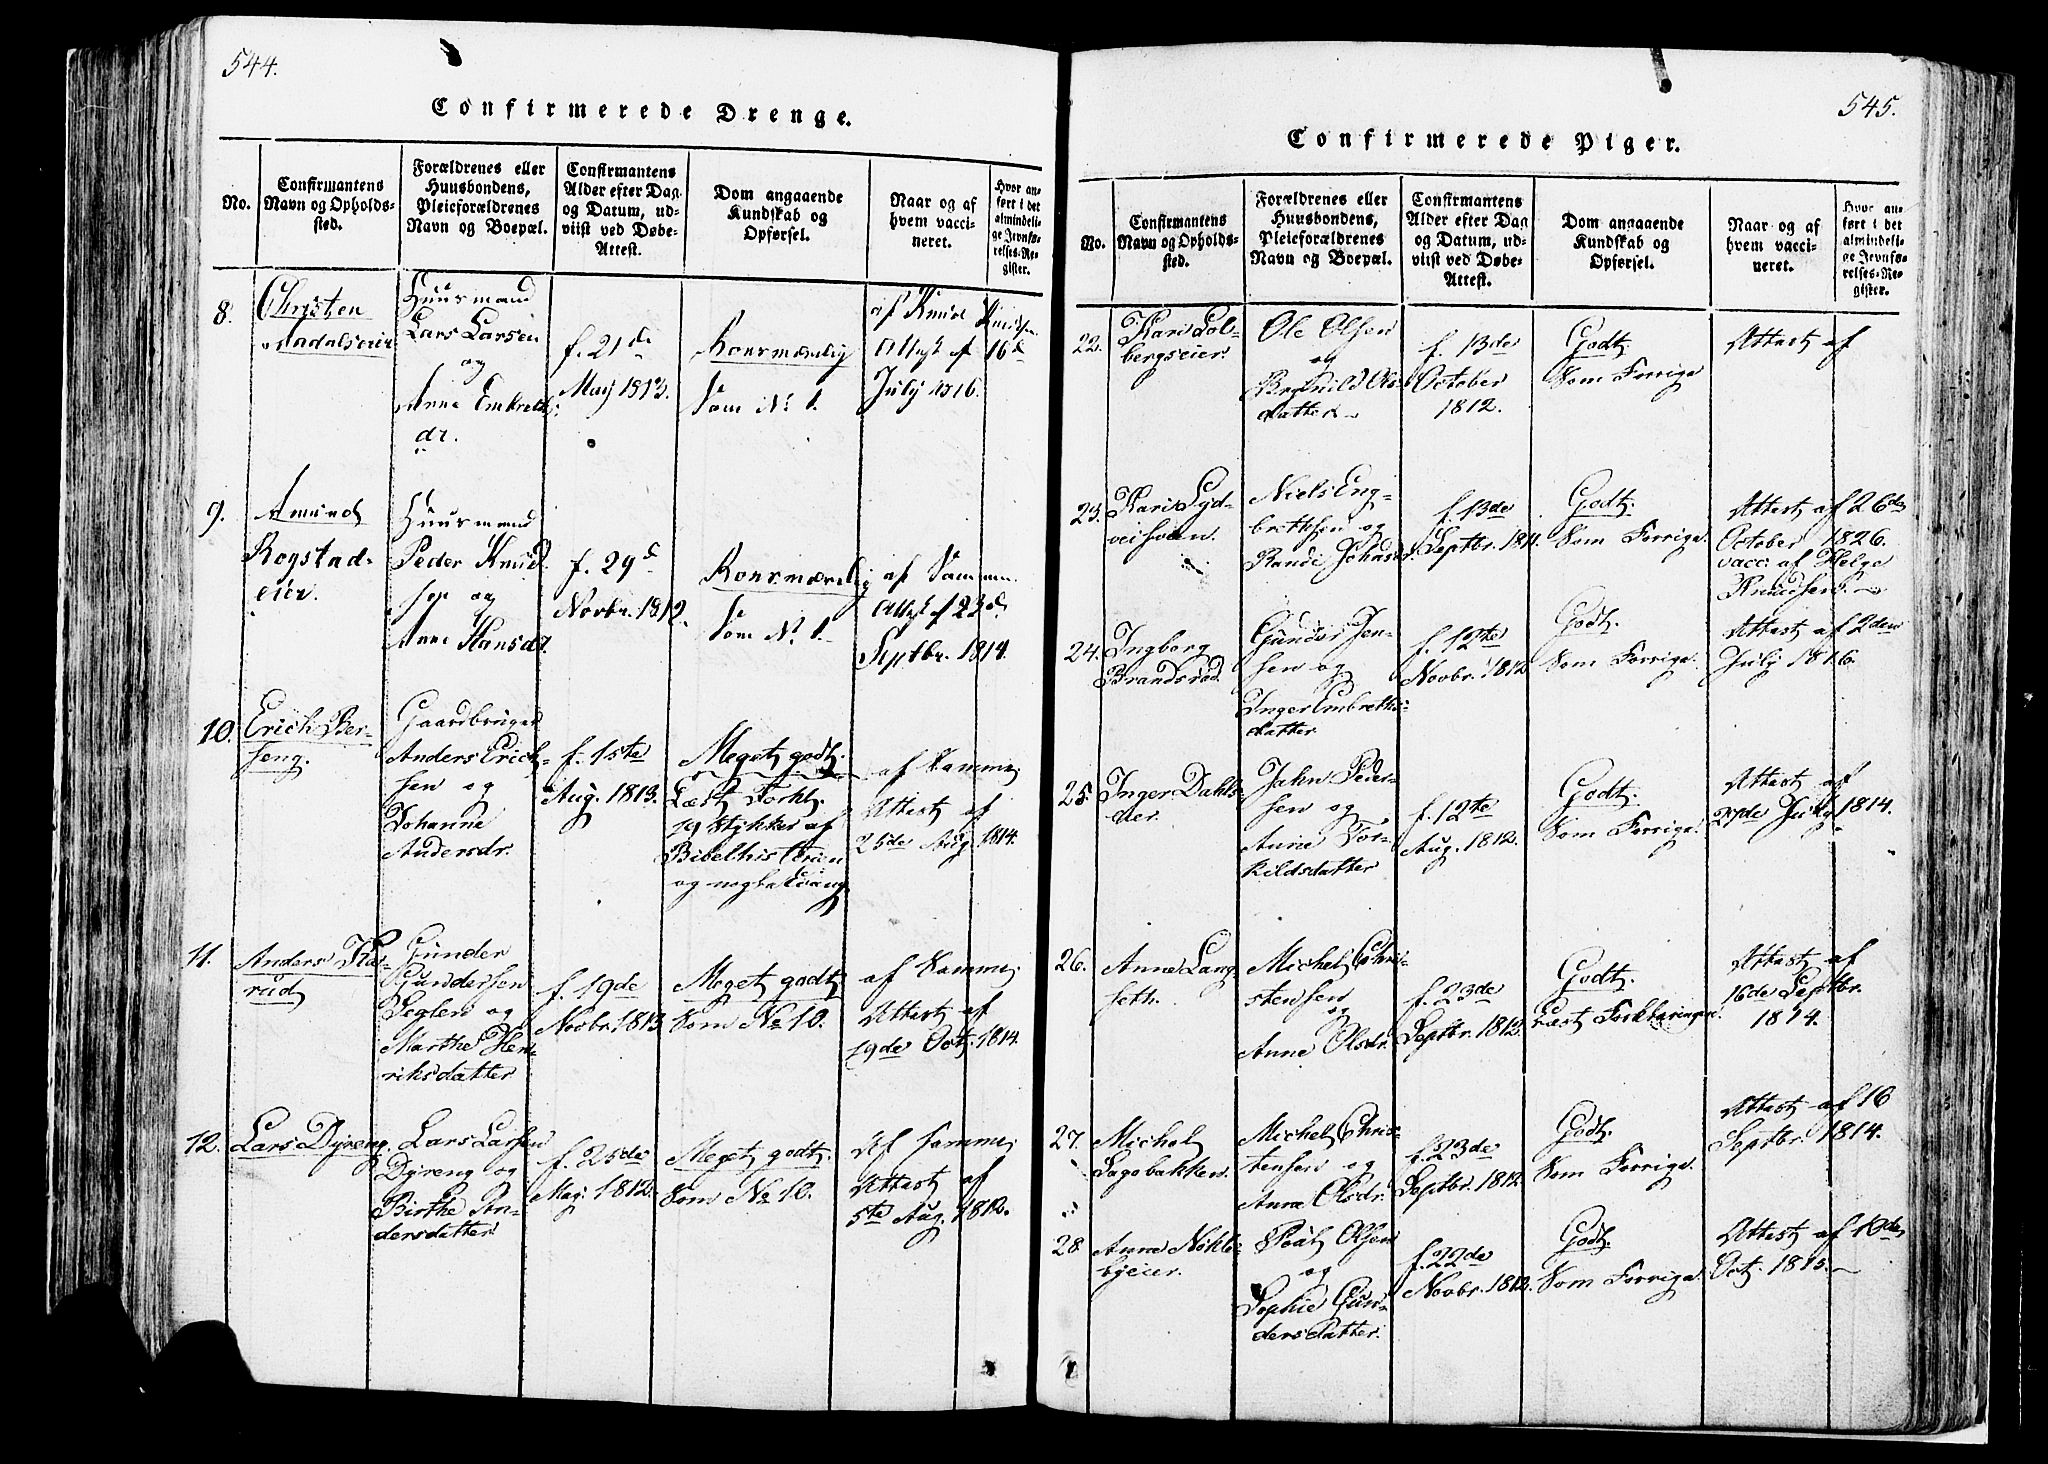 544.
Confirmerede Drenge.
No.
Confirmantens
Navn og Opholds-
sted.
Forældrenes eller
Huusbondens,
Pleieforældrenes
Navn og Boepæl.
Confirmantens
Alder efter Dag
og Datum, ud-
viist ved Døbe-
Attest.
Dom angaaende
Kundskab og
Opførsel.
Naar og af
hvem vacci-
neret.
Hvor an-
ført i det
almindeli-
ge Jevnfø-
relses-Re-
gister.
8.
Christen
Huusmand
Lars Larsen
og
Anne Embrets
dr.
f. 21de
May 1813.
Som No 1.
af Knud Knudsen
Attest af 16d
July 1816.
9.
Amund
Rogstad-
eier.
Huusmand
Peder Knud-
sen og
Anne Hansdr.
f. 29d
Novbr. 1812.
Som No 1.
af Samme
Attest af 23d
Septbr. 1814.
10.
Erich Ber-
seng.
Gaardbruger
Anders Erich-
sen og
Johanne
Andersdr.
f. 1ste
Aug. 1813.
Meget godt.
Læst Forkl.
19 Stykker af
Bibelhistorien
og nogle Evang.
af Samme
Attest af
25de Aug. 1814.
11.
Anders Kar-
rud
Gunder
Gundersen
Seglen og
Marthe Hen-
riksdatter
f. 19de
Novbr. 1813
Meget godt
Som No 10.
af Samme
Attest af
19de Oct. 1814.
12.
Lars Dyreng.
Lars Larsen
Dyreng og
Birthe An-
dersdatter
f. 25de
May. 1812.
Meget godt.
Som No 10.
Af samme
Attest af
5te Aug. 1812.
545.
Confirmerede Piger.
No.
Confirmantens
Navn og Opholds-
sted.
Forældrenes eller
Huusbondens,
Pleieforældrenes
Navn og Boepæl.
Confirmantens
Alder efter Dag
og Datum, ud-
viist ved Døbe-
Attest.
Dom angaaende
Kundskab og
Opførsel.
Naar og af
hvem vacci-
neret.
Hvor an-
ført i det
almindeli-
ge Jevnfø-
relses-Re-
gister.
22.
Kari Sol-
bergseier.
Ole Olsen
og
Brynild Ols-
datter
f. 13de
October
1812.
Godt.
Som Forrige
Attest af
23.
Niels Eng-
brethsen og
Randi Johnsd.
f. 13de
Septbr. 1811.
Godt.
Som Forrige.
Attest af 26de
October 1826.
vacc: af Helge
Knudsen.
24.
Ingborg
Brandsrud.
Gunder Jen-
sen og
Inger Embreths-
datter
f. 12te
Novbr. 1812
Godt.
Som Forrige.
Attest af 2den
July 1816.
25.
Inger Dahls-
eier.
John Peder-
sen og
Anne Tor-
kildsdatter
f. 12te
Aug. 1812.
Godt.
Som Forrige.
Attest af
27de July 1814.
26.
Anne Lang-
seth.
Michel Chri-
stensen
og
Anne Olsdr.
f. 23de
Septbr. 1812.
Godt.
Læst Forklaringen.
Attest af
16de Septbr.
1814.
27.
Michol
Sagebakken.
Michel Chris-
tensen og
Anne Olsdr.
f. 23de
Septbr. 1812.
Godt.
Som Forrige.
Attest af 16
Septbr. 1814.
28.
Anne Nøkle-
byeier.
Poul Olsen
og
Sophie Gun-
dersdatter.
f. 22de
Novbr. 1812.
Godt.
Som Forrige.
Attest af 10de
Oct. 1815.